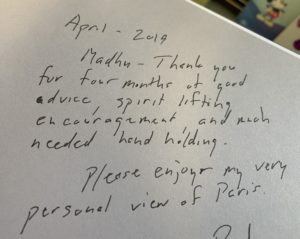 April - 2019
Madhu - Thank you
for four months of good
advice, spirit lifting,
encouragement, and much
needed hand holding.
Please enjoy my very
personal view of Paris.